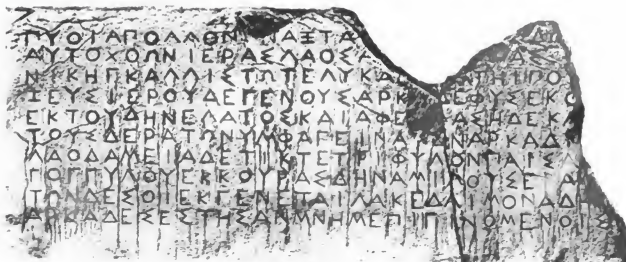 ΠΥΘΙΑΠΟΛΛΟΝ ΝΑΞΤΑ
ΑΥΤΟΧΘΩΝΙΕΡΑΣΛΑΟΣΑ
ΝΙΚΗΓΚΑΛΛΙΣΤΩΤΕΛΥΚΑ ΤΗΙΠΟ
ΙΕΥΣΙΕΡΟΥΔΕΓΕΝΟΥΣΑΡΚ ΕΦΥΣΕΚΟ
ΕΚΤΟΥΔΗΝΕΛΑΤΟΣΚΑΙΑΦΕ ΑΣΗΔΕΚ
ΤΟΥΣΔΕΡΑΤΩΝΥΜΦΑΓΕΙ Α ΝΑΡΚΑΔ
ΛΑΟΔΑΜΕΙΑΔΕΤΙΚΤΕΤΡΙΦΥΛΟΝΠΑΙΣΑ
ΓΟΓΓΥΛΟΥΕΚΚΟΥΡΑΣΔΗΝΑΜΙΛΟΥΣΕ Α
ΤΩΝΔΕΣΟΙΕΚΓΕΝΕΤΑΙΛΑΚΕΔΑΙΜΟΝΑΔ
ΑΡΚΑΔΕΣΕΣΤΗΣΑΝΜΝΗΜΕΠΙΓΙΝΟΜΕΝΟΙΣ